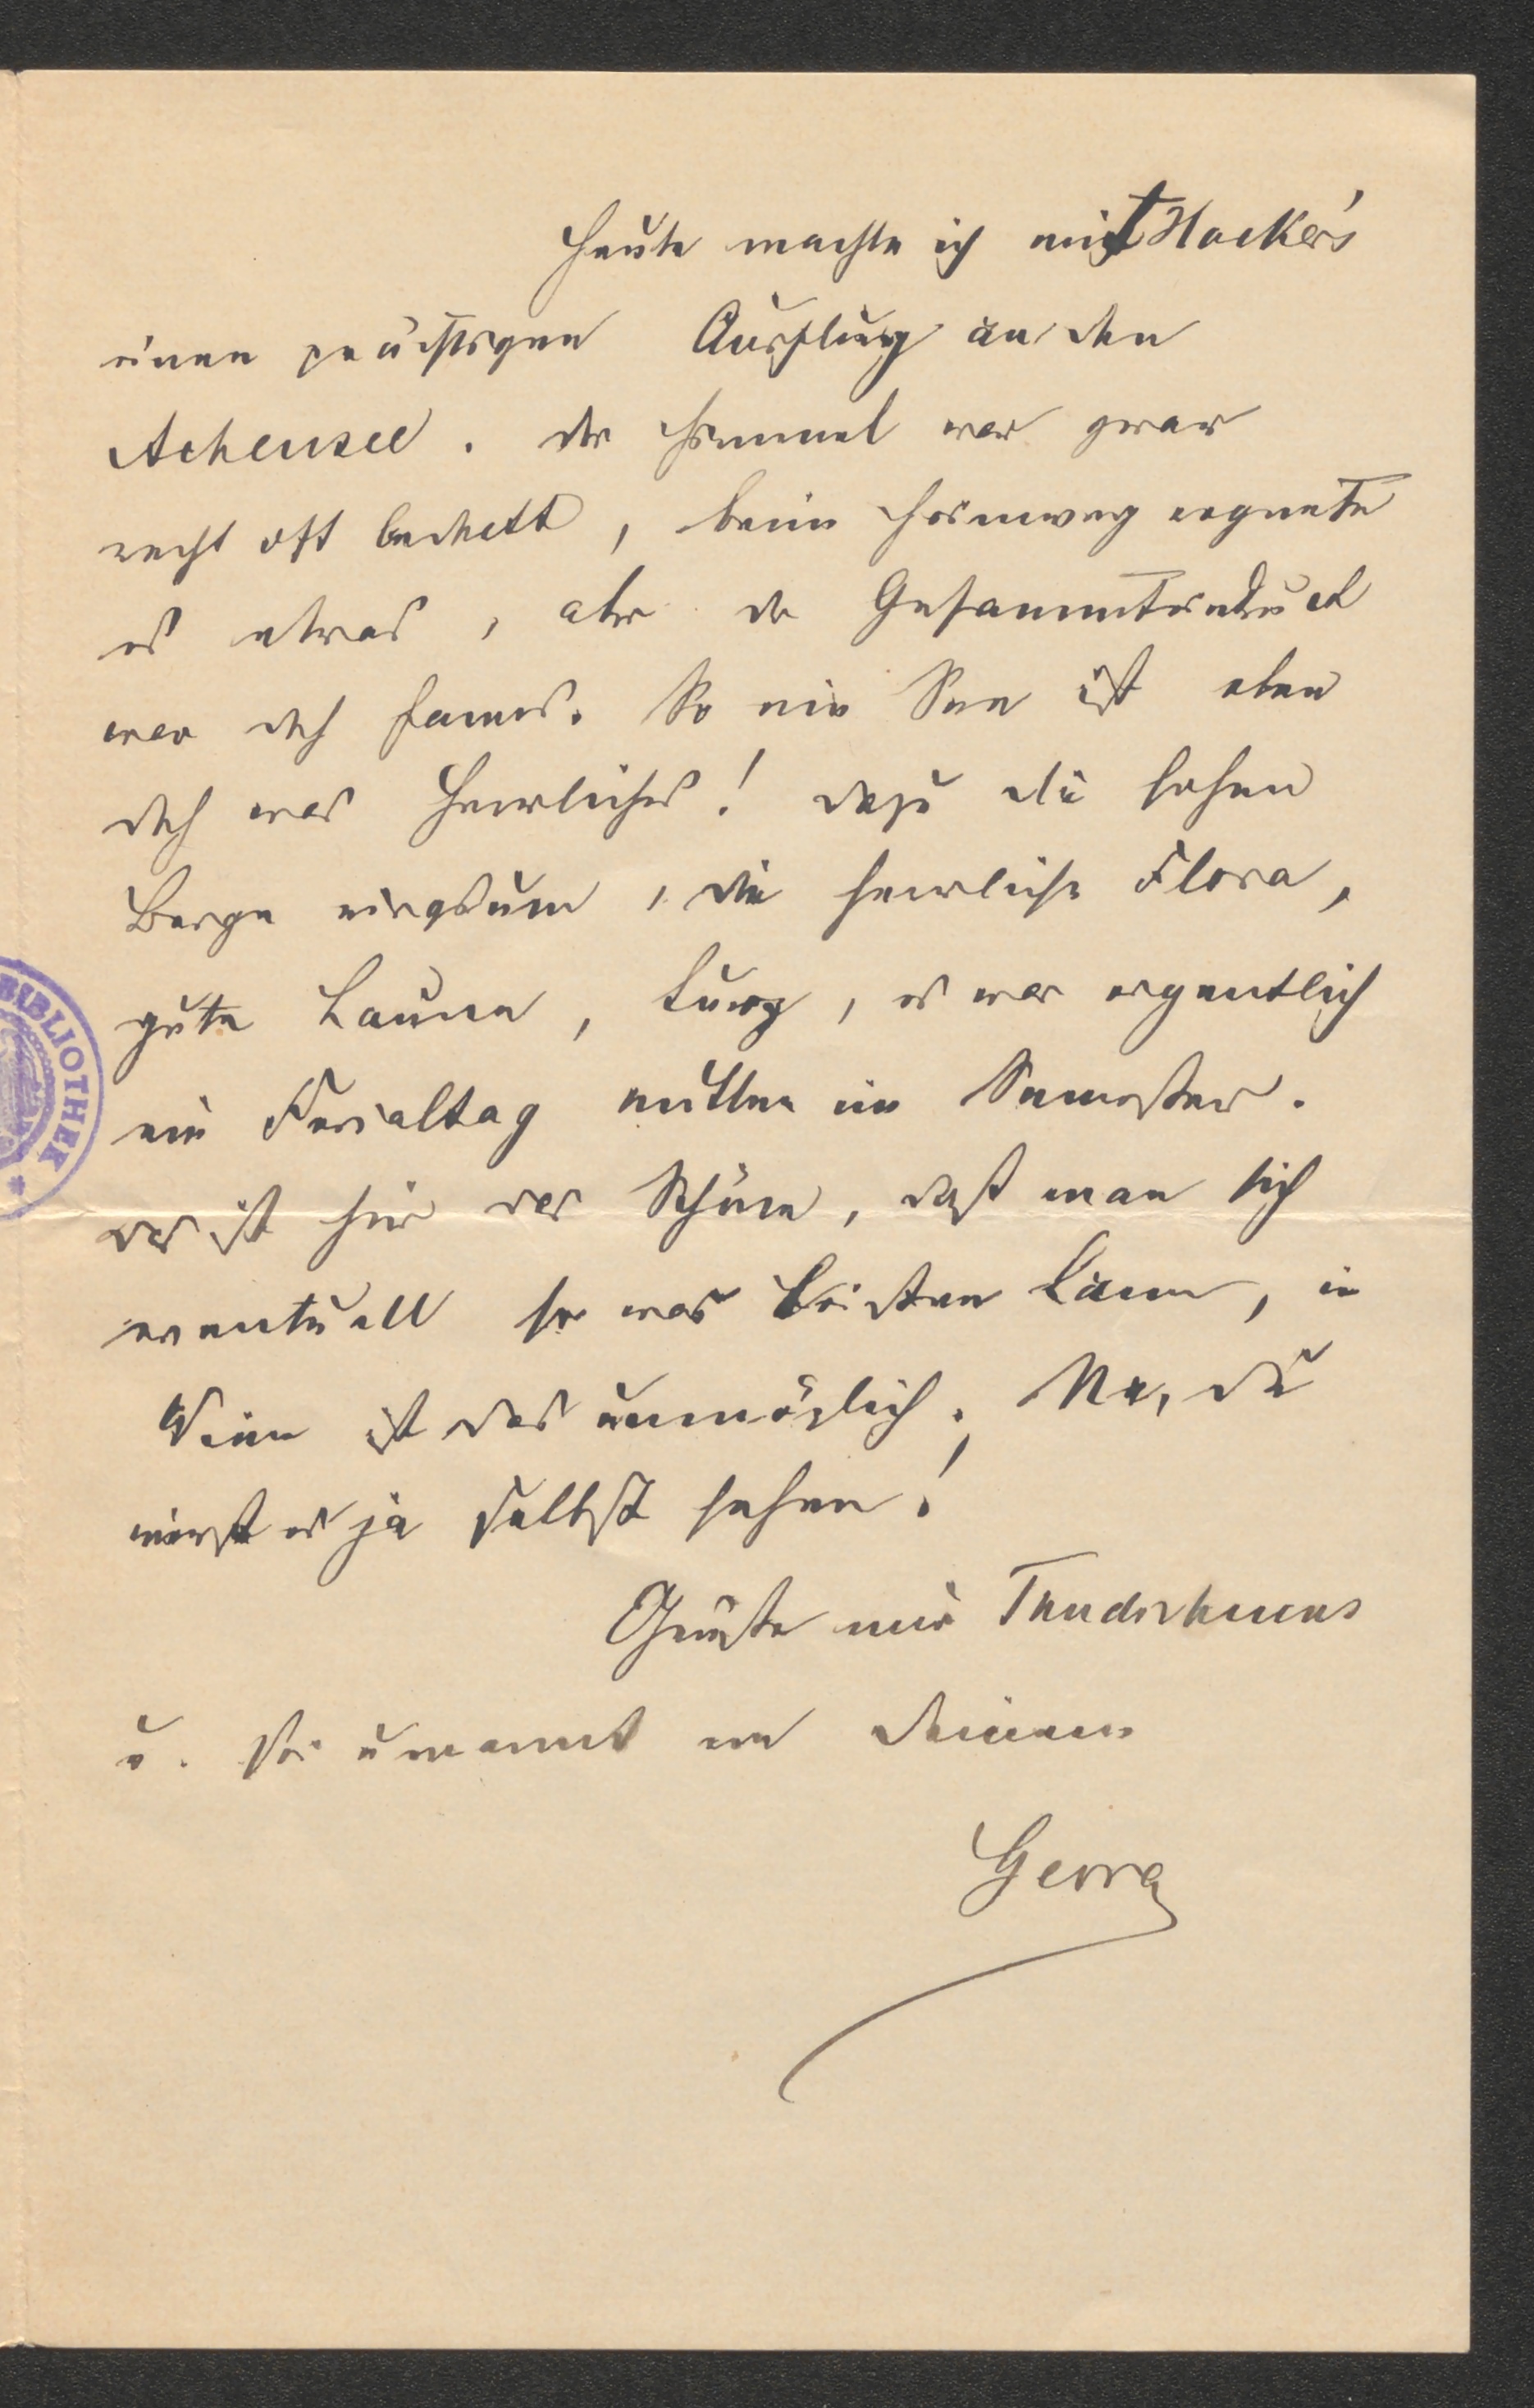 Heute machte ich mit Hacker's
einen prächtigen Ausflug an den
Achensee. Der Himmel war zwar
recht oft bedeckt, beim Heimweg regnete
es etwas, aber der Gesammteindruck
war doch famos. So ein See ist eben
doch was Herrliches! Dazu die hohen
Berge ringsum, die herrliche Flora,
gute Laune, kurz, es war eigentlich
ein Ferialtag mitten im Semester.
Das ist hier das Schöne, daß man sich
eventuell so was leisten kann, in
Wien ist das unmöglich. Na, Du
wirst es ja selbst sehen!
Grüße mir
u. sei umarmt von Deinem
Georg
BIBLIOTHEK